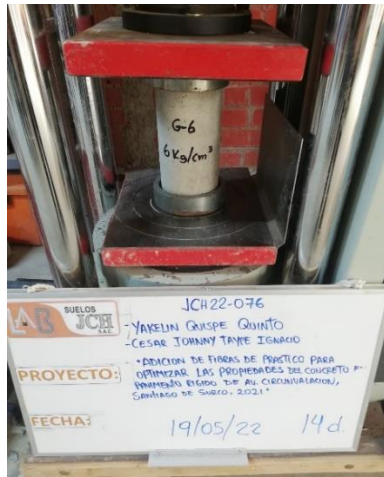 G-6
6 Kg/cm³
LAB SUELOS JCH S.A.C.
JCH22-076
- YAKELIN QUISPE QUINTO
- CESAR JOHNNY TAYPE IGNACIO
PROYECTO:
"ADICION DE FIBRAS DE PLASTICO PARA
OPTIMIZAR LAS PROPIEDADES DEL CONCRETO
PAVIMENTO RIGIDO DE AV. CIRCUNVALACION,
SANTIAGO DE SURCO. 2021"
FECHA:
19/05/22 14 d.